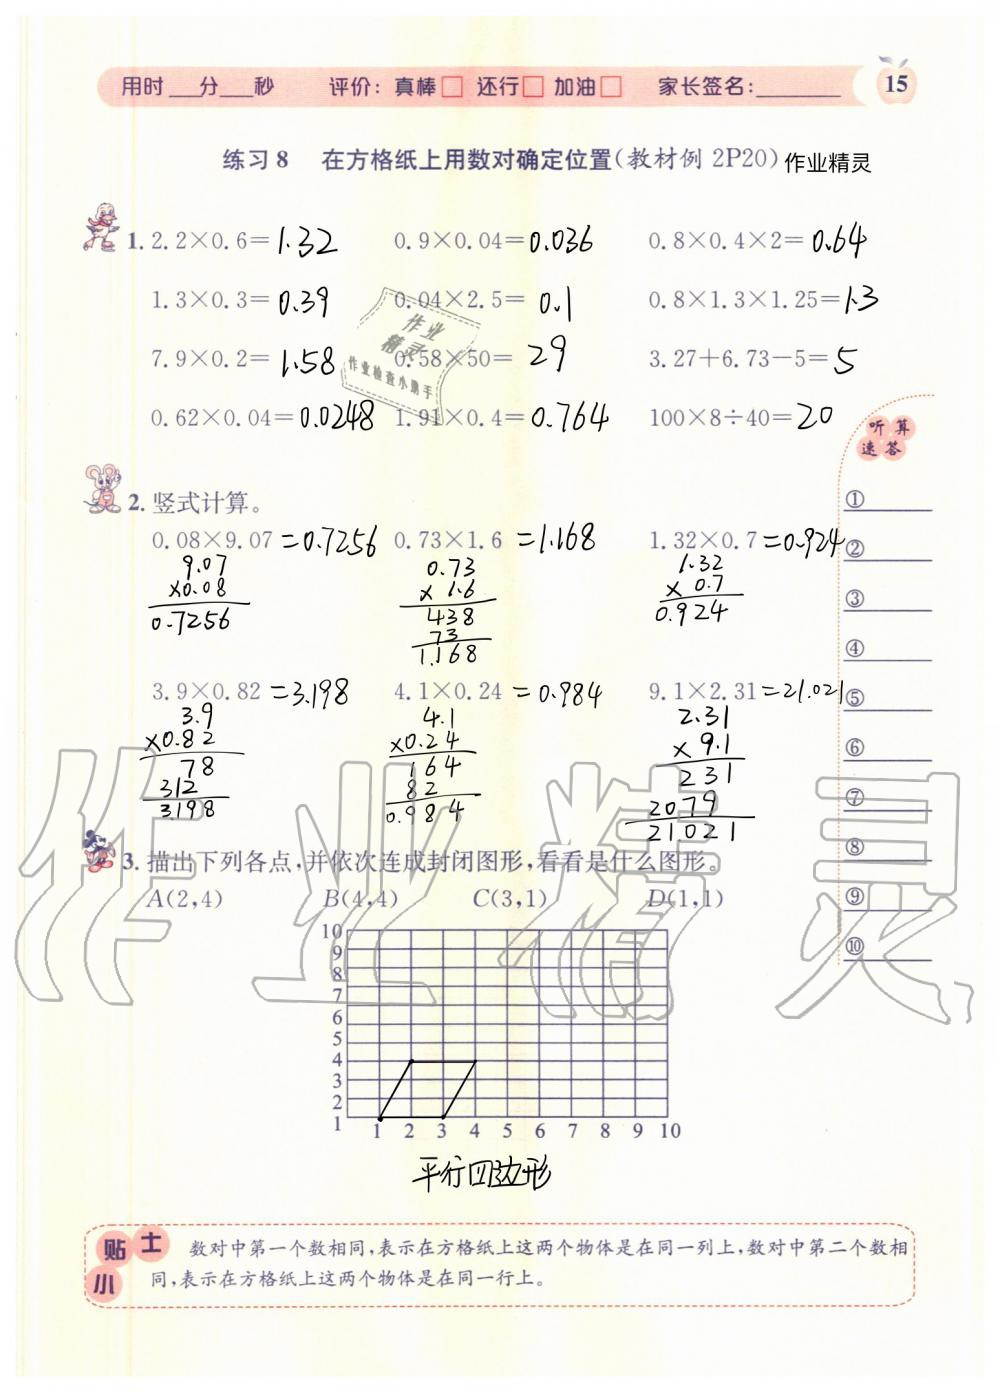 用时___分___秒 评价：真棒□ 还行□ 加油□ 家长签名：______ 15
练习8 在方格纸上用数对确定位置(教材例2P20) 作业精灵
1. 2.2×0.6=1.32 0.9×0.04=0.036 0.8×0.4×2=0.64
1.3×0.3=0.39 0.04×2.5=0.1 0.8×1.3×1.25=1.3
7.9×0.2=1.58 0.58×50=29 3.27+6.73-5=5
0.62×0.04=0.0248 1.91×0.4=0.764 100×8÷40=20
作业
精灵
作业检查小助手
听算
速答
①
②
③
④
⑤
⑥
⑦
⑧
⑨
⑩
2. 竖式计算。
0.08×9.07=0.7256 0.73×1.6=1.168 1.32×0.7=0.924
9.07 0.73 1.32
×0.08 ×1.6 ×0.7
0.7256 438 0.924
73
1.168
3.9×0.82=3.198 4.1×0.24=0.984 9.1×2.31=21.021
3.9 4.1 2.31
×0.82 ×0.24 ×9.1
78 164 231
312 82 2079
3198 0.984 21021
3. 描出下列各点,并依次连成封闭图形,看看是什么图形。
A(2,4) B(4,4) C(3,1) D(1,1)
10
9
8
7
6
5
4
3
2
1
1 2 3 4 5 6 7 8 9 10
平行四边形
作业精灵
小贴士
数对中第一个数相同,表示在方格纸上这两个物体是在同一列上,数对中第二个数相
同,表示在方格纸上这两个物体是在同一行上。